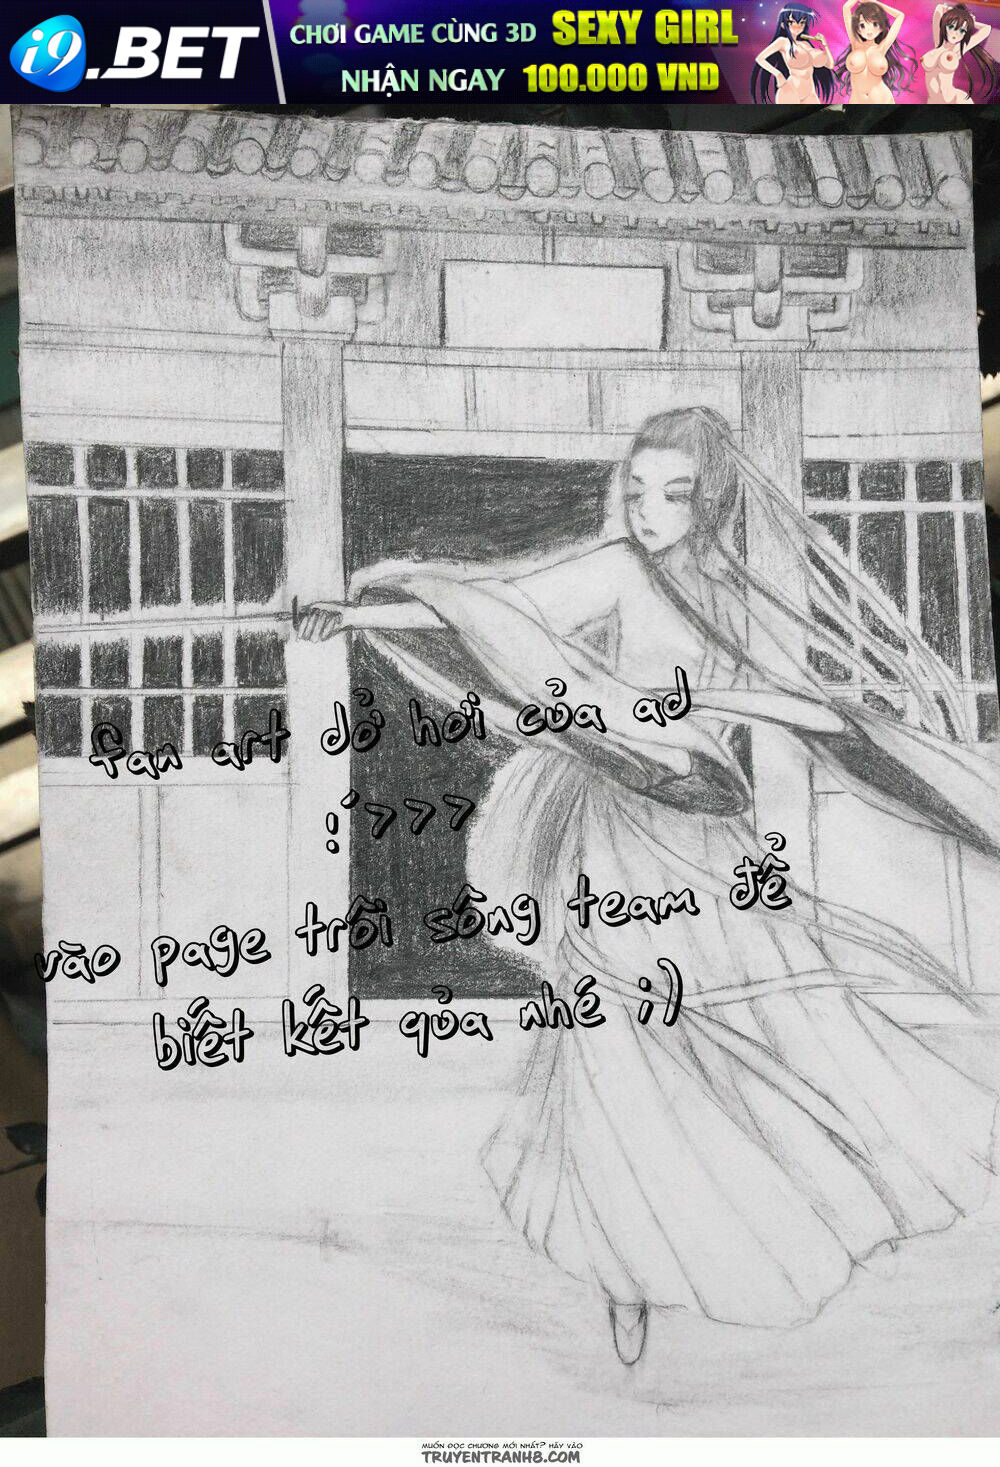 i9.BET
CHƠI GAME CÙNG 3D SEXY GIRL
NHẬN NGAY 100.000 VND
fan art dở hơi của ad
:'>>>
vào page trôi sông team để
biết kết qủa nhé ;)
MUỐN ĐỌC CHƯƠNG MỚI NHẤT? HÃY VÀO
TRUYENTRANH8.COM